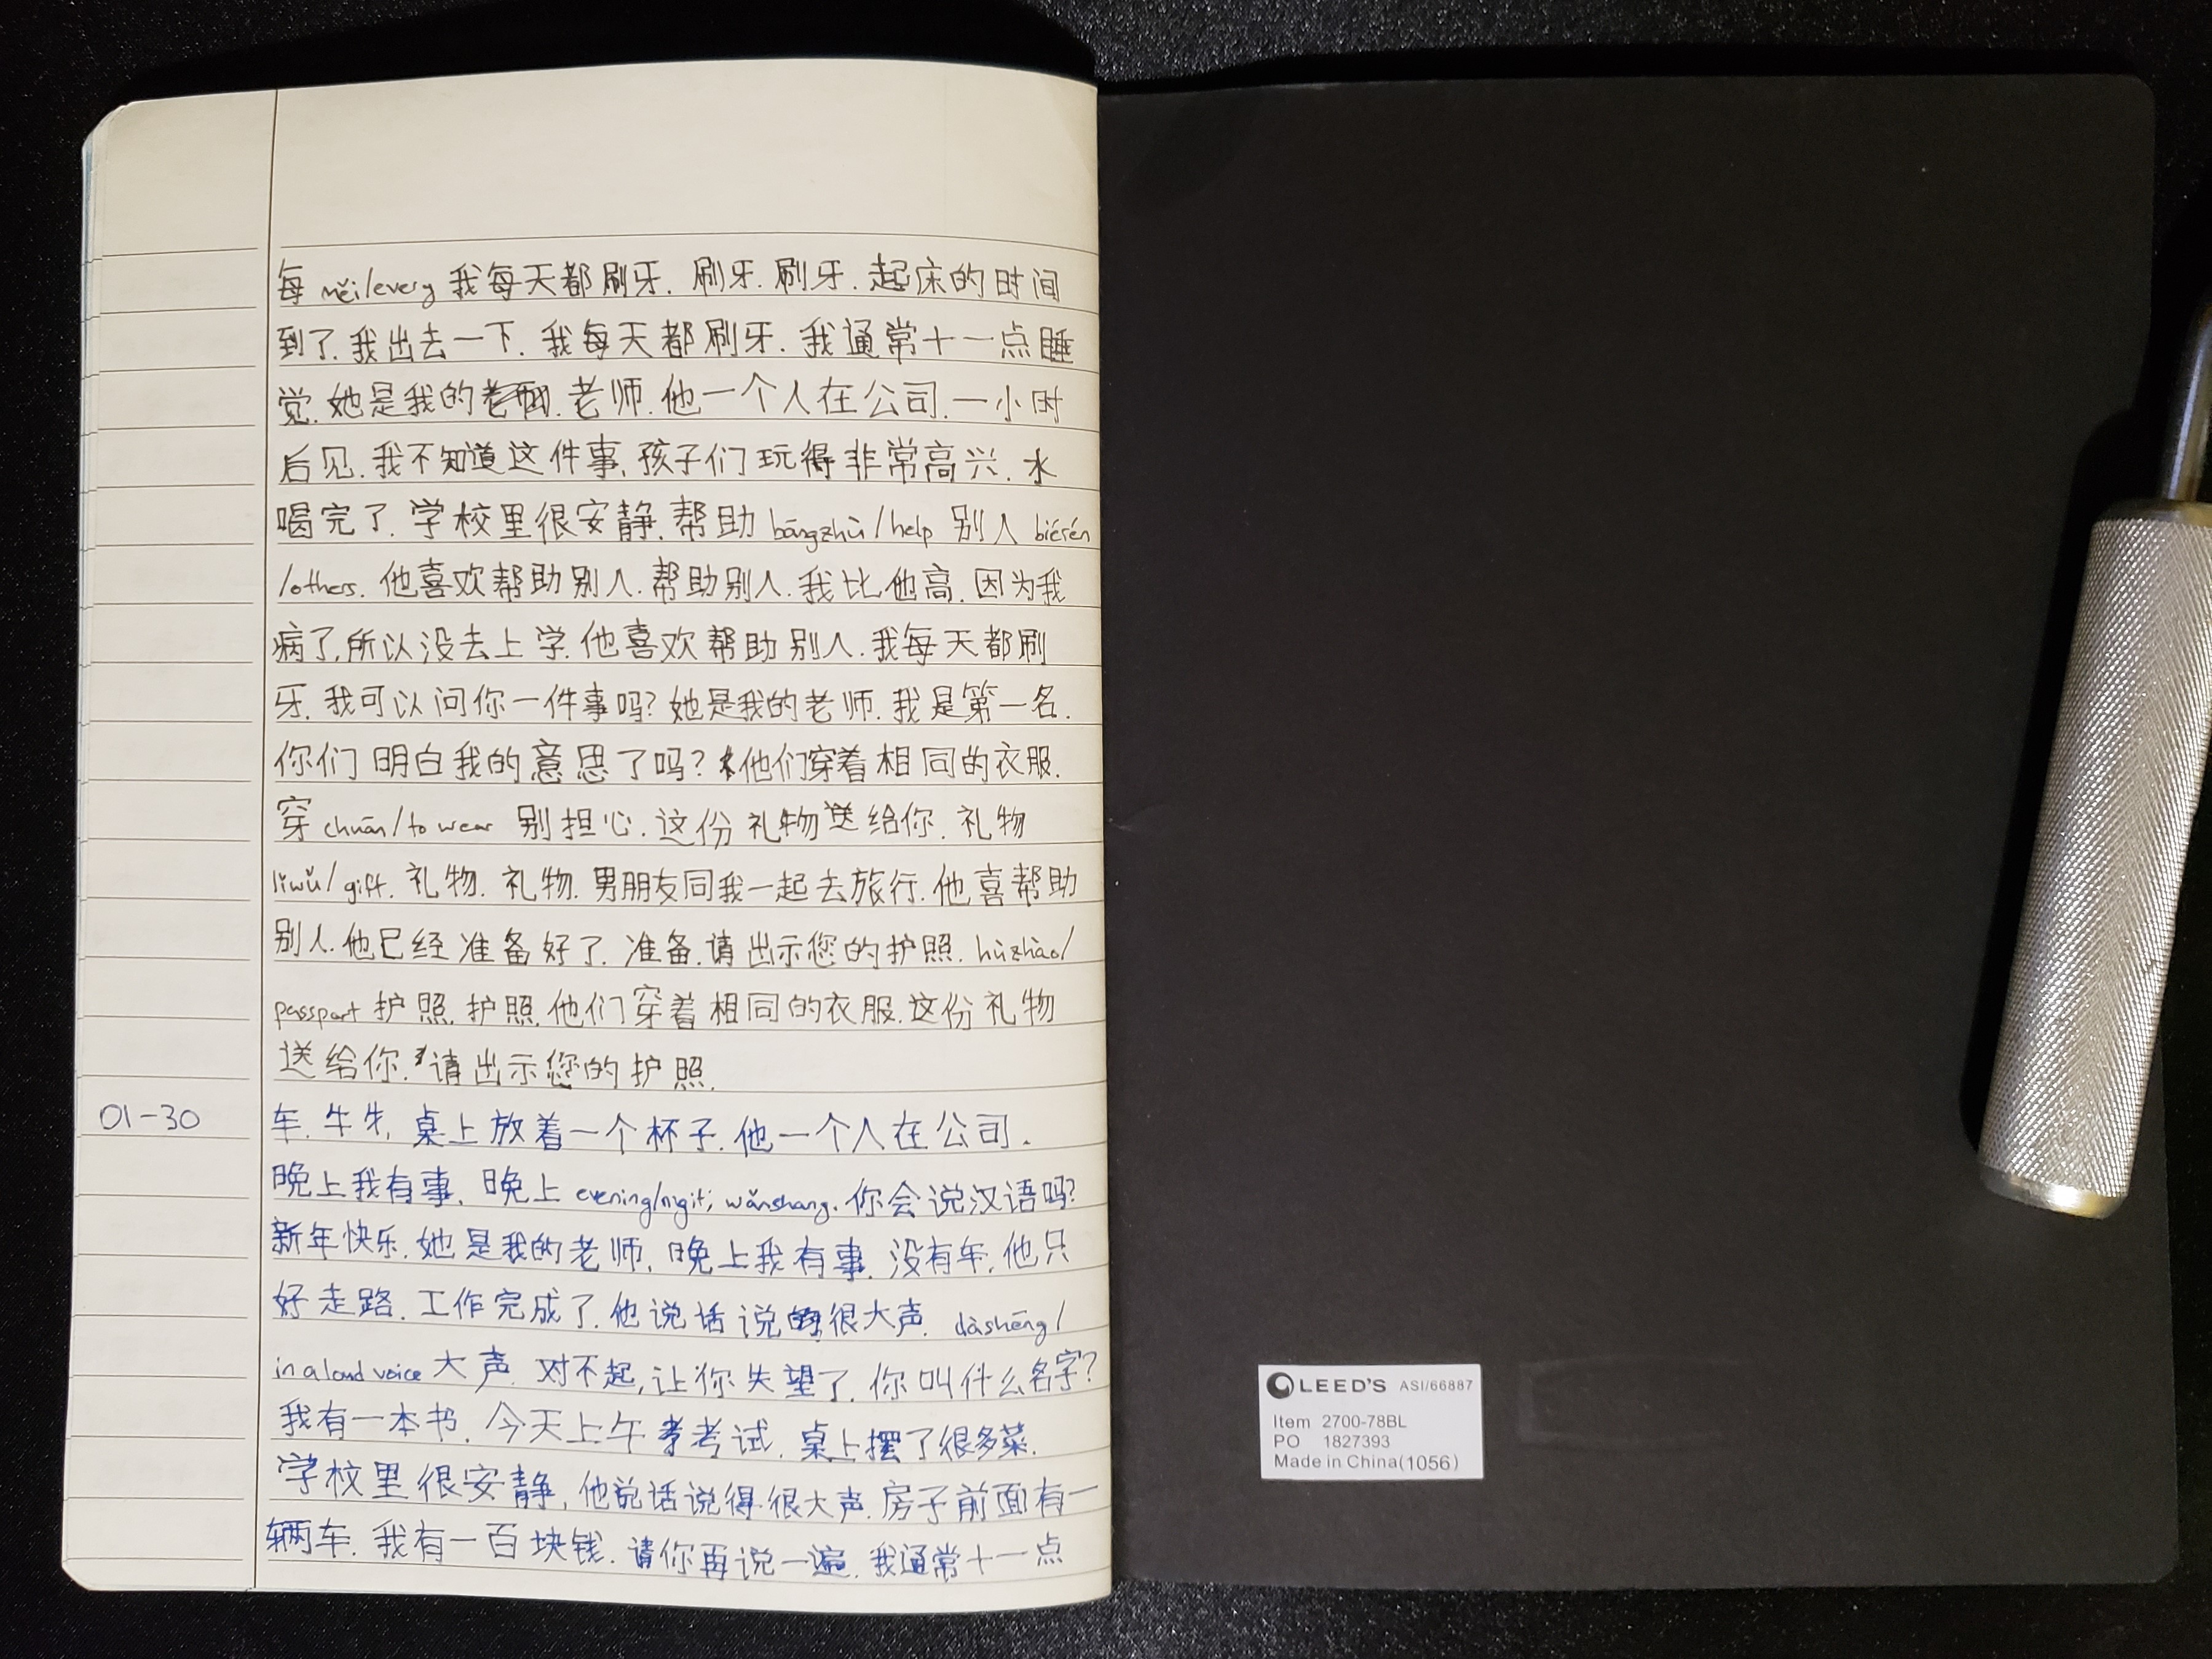 每 měi/every 我每天都刷牙. 刷牙. 刷牙. 起床的时间
到了. 我出去一下. 我每天都刷牙. 我通常十一点睡
觉. 她是我的 老师. 他一个人在公司. 一小时
后见. 我不知道这件事. 孩子们玩得非常高兴. 水
喝完了. 学校里很安静. 帮助 bāngzhù/help 别人 biérén
/others. 他喜欢帮助别人. 帮助别人. 我比他高. 因为我
病了, 所以没去上学. 他喜欢帮助别人. 我每天都刷
牙. 我可以问你一件事吗? 她是我的老师. 我是第一名.
你们明白我的意思了吗? 他们穿着相同的衣服.
穿 chuān/to wear 别担心. 这份礼物送给你. 礼物
lǐwǔ/gift. 礼物. 礼物. 男朋友同我一起去旅行. 他喜帮助
别人. 他已经准备好了. 准备. 请出示您的护照. hùzhào/
passport 护照. 护照. 他们穿着相同的衣服. 这份礼物
送给你. 请出示您的护照.
01-30 车. 牛牛. 桌上放着一个杯子. 他一个人在公司.
晚上我有事. 晚上 evening/nigit; wǎnshang. 你会说汉语吗?
新年快乐. 她是我的老师. 晚上我有事. 没有车, 他只
好走路. 工作完成了. 他说话说 很大声. dàshēng/
in a loud voice 大声. 对不起, 让你失望了. 你叫什么名字?
我有一本书. 今天上午考试. 桌上摆了很多菜.
学校里很安静, 他说话说得很大声. 房子前面有一
辆车. 我有一百块钱. 请你再说一遍. 我通常十一点
LEED'S ASI/66887
Item 2700-78BL
PO 1827393
Made in China(1056)